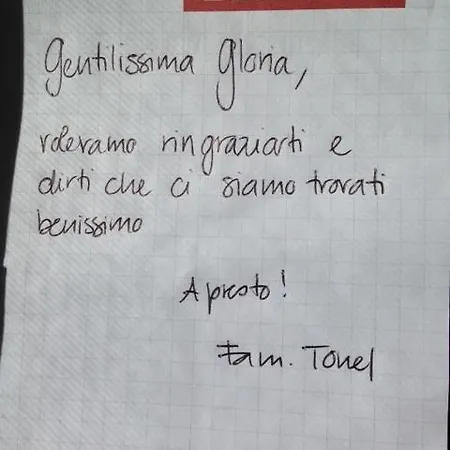 Gentilissima Gloria,
volevamo ringraziarti e
dirti che ci siamo trovati
benissimo
A presto!
Fam. Tonel